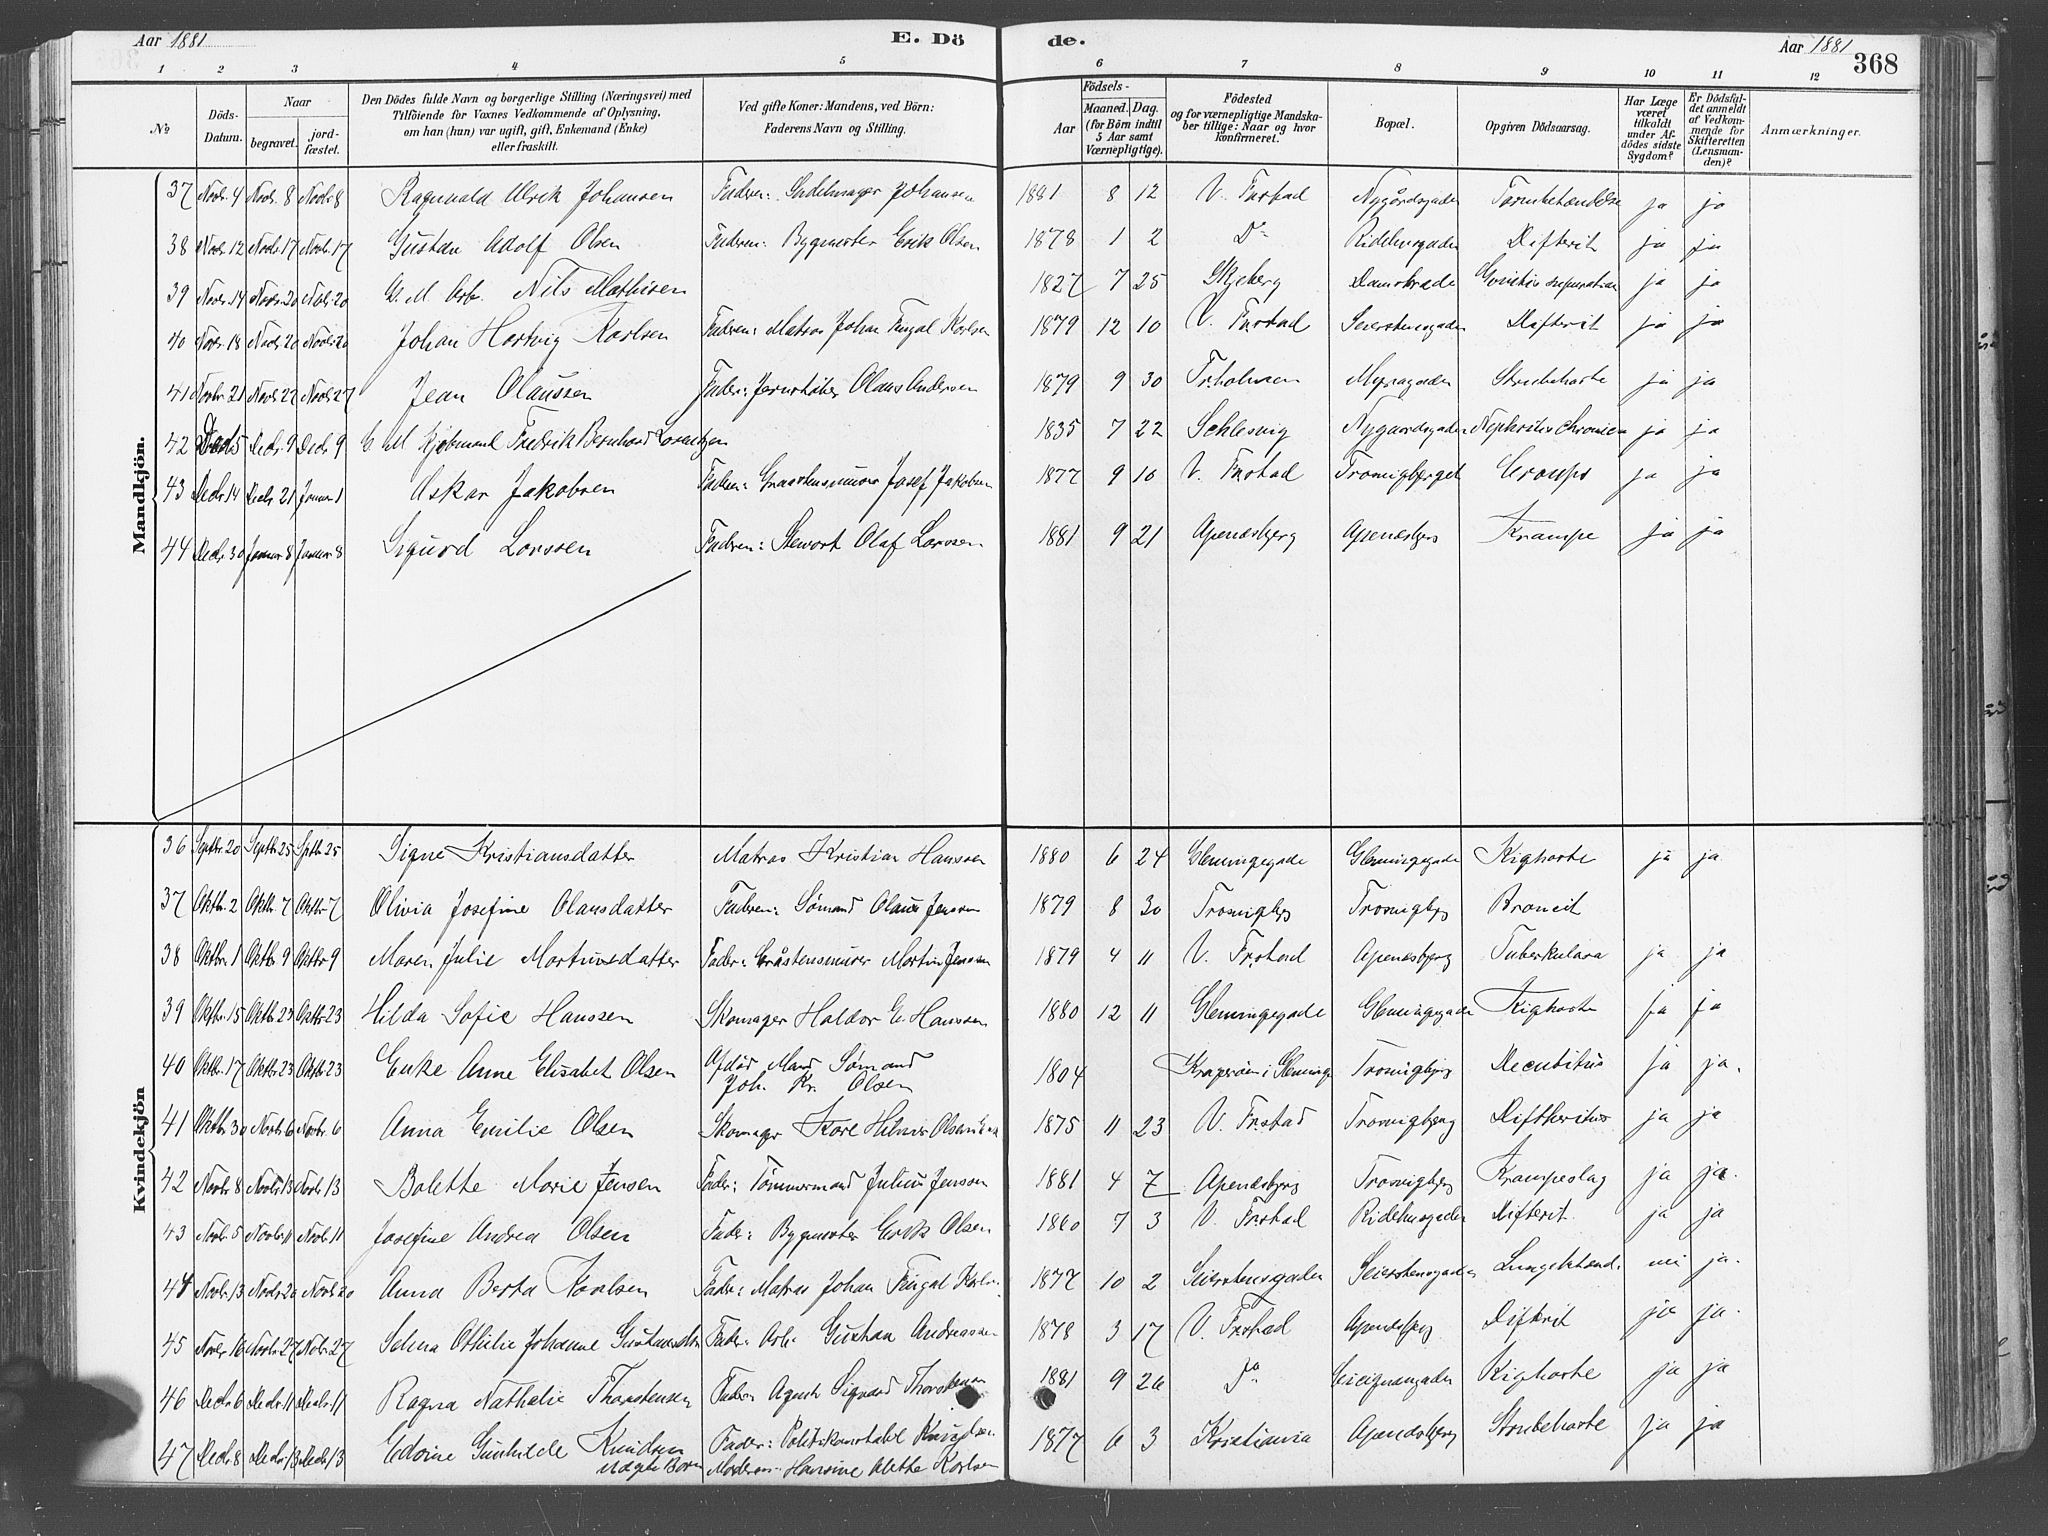 Aar 1881 E. Dö de. Aar 1881 368
1 2 3 4 5 6 7 8 9 10 11 12
No Döds-Datum. Naar begravet. jordfæstet. Den Dödes fulde Navn og borgerlige Stilling (Næringsvei) med Tilföiende for Voxnes Vedkommende af Oplysning, om han (hun) var ugift, gift, Enkemand (Enke) eller fraskilt. Ved gifte Koner: Mandens, ved Börn: Faderens Navn og Stilling. Födsels- Aar Maaned. Dag. (for Börn indtil 5 Aar samt Værnepligtige). Födested og for værnepligtige Mandskaber tillige: Naar og hvor konfirmeret. Bopæl. Opgiven Dödsaarsag. Har Læge været tilkaldt under Afdödes sidste Sygdom? Er Dödsfaldet anmeldt af Vedkommende for Skifteretten (Lensmanden)? Anmærkninger.
Mandkjön.
37 Novbr. 4 Novbr. 8 Novbr. 8 Ragnvald Ulrik Johansen Faderen: Johansen 1881 8 12 V. Frstad Nygårdsgaden ja ja
38 Novbr. 12 Novbr. 17 Novbr. 17 Gustav Adolf Olsen Faderen: Bygmester Erik Olsen 1878 1 2 Do Ridehusgaden Difterit ja ja
39 Novbr. 14 Novbr. 20 Novbr. 20 G. M. Arb. Nils Mathisen 1827 7 25 Skjeberg Damstræde ja ja
40 Novbr. 18 Novbr. 20 Novbr. 20 Johan Hartvig Karlsen Faderen: Matros Johan Fingal Karlsen 1879 12 10 V. Frstad Seierstensgaden Difterit ja ja
41 Novbr. 21 Novbr. 27 Novbr. 27 Jean Olaussen Fader: Jernstøber Olaus Andersen 1879 9 30 Frholmen Myragaden Strubehoste ja ja
42 Decbr. 5 Decbr. 9 Decbr. 9 G. M. Kjøbmand Fredrik Bernhard Lorentzen 1835 7 22 Schlesvig Nygaardsgaden Nephritis chronica ja ja
43 Decbr. 14 Decbr. 21 Januar 1 Oskar Jakobsen Faderen: Graastensmurer Josef Jakobsen 1877 9 10 V. Frstad Trosvigberget Croups ja ja
44 Decbr. 30 Januar 8 Januar 8 Sigurd Larssen Faderen: Stewart Olaf Larssen 1881 9 21 Apenæsbjerg Apenæsbjerg Krampe ja ja
Kvindekjön
36 Septbr. 20 Septbr. 25 Septbr. 25 Signe Kristiansdatter Matros Kristian Hanssen 1880 6 24 Glemmingegade Glemmingegade Kighoste ja ja
37 Oktbr. 2 Oktbr. 7 Oktbr. 7 Olivia Josefine Olausdatter Faderen: Sømand Olaus Jensen 1879 8 30 Trosvigbjg Trosvigbjg Broncit
38 Oktbr. 1 Oktbr. 9 Oktbr. 9 Maren Julie Martinsdatter Fader: Gråstensmurer Martin Jenssen 1879 4 11 V. Frstad Apenæsbjerg Tuberkulose ja ja
39 Oktbr. 15 Oktbr. 23 Oktbr. 23 Hilda Sofie Hanssen Skomager Haldor E. Hanssen 1880 12 11 Glemmingegade Glemmingegaden Kighoste ja ja
40 Oktbr. 17 Oktbr. 23 Oktbr. 23 Enke Anne Elisabet Olsen Afdød Mand Sømand Joh. Kr. Olsen 1804 Kragerøen i Glemminge Trosvigbjrg Decubitus ja ja.
41 Oktbr. 30 Novbr. 6 Novbr. 6 Anna Emilie Olsen Skomager Kare Hilmer Olsen 1875 11 23 V. Frstad Trosvigbjerg Diftheritus ja ja
42 Novbr. 8 Novbr. 13 Novbr. 13 Bolette Marie Jensen Fader: Tømmermand Julius Jensen 1881 4 7 Apenæsbjerg Trosvigbjerg Krampeslag ja ja.
43 Novbr. 5 Novbr. 11 Novbr. 11 Josefine Andrea Olsen Fader: Bygmester Erik Olsen 1880 7 3 V. Frstad Ridehusgaden Difterit. ja ja
44 Novbr. 13 Novbr. 20 Novbr. 20 Anna Berta Karlsen Fader: Matros Johan Fingal Karlsen 1877 10 2 Seierstensgaden Seierstensgaden Lungebetænd. nei ja.
45 Novbr. 16 Novbr. 27 Novbr. 27 Selma Othilie Johanne Gustavsdatter Fader: Arb. Gustav Andreassen 1878 3 17 V. Frstad Apenæsbjerg Difterit ja ja.
46 Decbr. 6 Decbr. 11 Decbr. 11 Ragna Nathalie Thorstensen Fader: Agent Sigvard Thorstensen 1881 9 26 Do Kighoste ja ja
47 Decbr. 8 Decbr. 13 Decbr. 13 Edvine Gunhilde Knudsen uægte Barn Fader: Politikonstabel Knudsen Moderen: Hansine Alette Karlsen 1877 6 3 Kristiania Apenæsbjerg Strubehoste ja ja